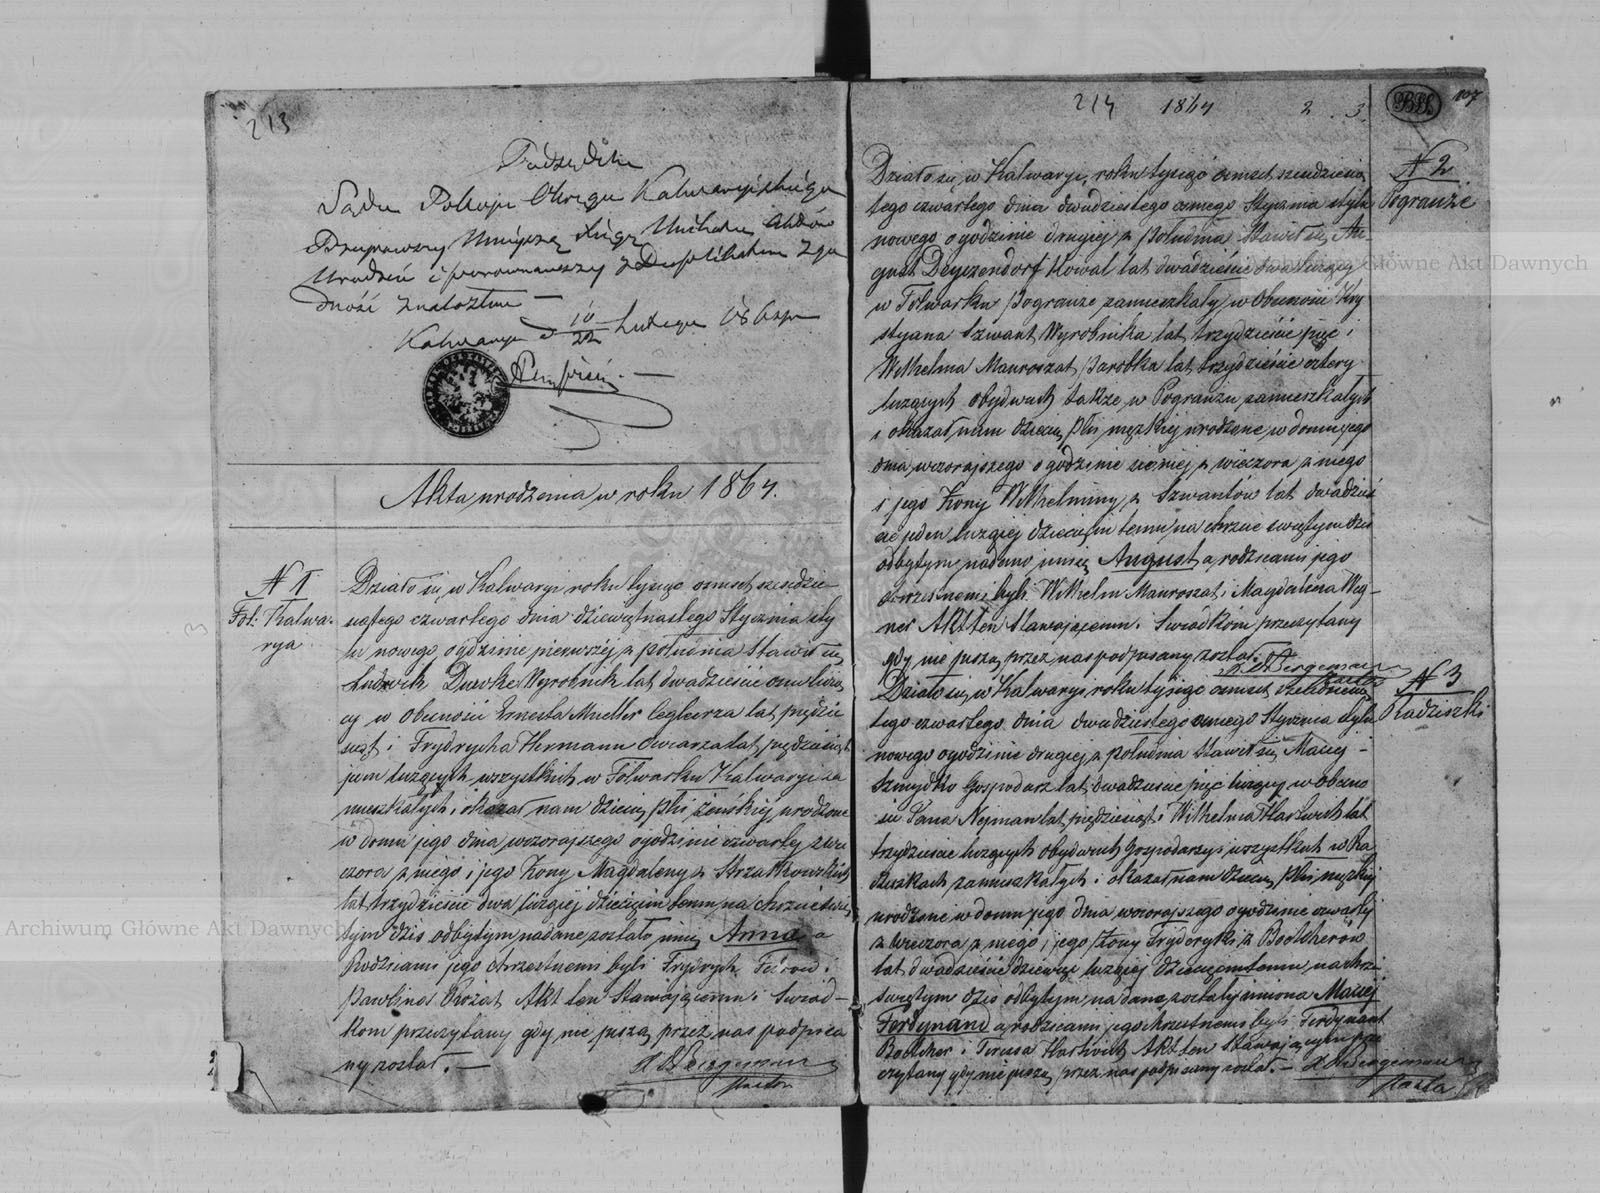 213
Podsędek
Sądu Pokoju Okręgu Kalwaryjskiego
Przejrzawszy niniejszą księgę Unikatu Aktów
Urodzeń i porównawszy z Duplikatem zgo
dność znalazłem —
Kalwarya d 10/22 Lutego 186 r
Akta urodzenia w roku 1864.
N 1
Fol: Kalwa-
rya
Działo się w Kalwaryi roku tysiąc ośmset sześćdzie-
siątego czwartego dnia dziewiętnastego Stycznia sty
lu nowego o godzinie pierwszej z południa Stawił się
Ludwik Dawke Wyrobnik lat dwadzieście ośm liczą
cy w obecności Ernesta Mueller Ceglarza lat pięćdzie
siąt i Frydrycha Hermann Owczarza lat pięćdziesiąt
jeden liczących wszystkich w Folwarku Kalwaryi za
mieszkałych, i okazał nam dziecię płci żeńskiej urodzone
w domu jego dnia wczorajszego o godzinie czwartej z wie
czora z niego i jego Żony Magdaleny z Strzałkowskich
lat trzydzieście dwa liczącej dziecięciu temu na chrzcie świę
tym dziś odbytym nadane zostało imię Anna a
Rodzicami jego chrzestnemi byli Frydrych i
Pawlina Akt ten Stawającemu i Świad-
kom przeczytany gdy nie piszą przez nas podpisa
ny został. —
Pastor
214 1864 2 . 3. 107
N 2
Pogranże
Działo się w Kalwaryi, roku tysiąc ośmset sześćdziesią
tego czwartego dnia dwudziestego ósmego Stycznia stylu
nowego o godzinie drugiej z południa Stawił się Au-
gust Deyzendorf Kowal lat dwadzieście dwa liczący
w Folwarku Pogranże zamieszkały w Obecności Kry
styana Szwant Wyrobnika lat trzydzieście pięć i
Wilhelma Mauroszat Parobka lat trzydzieście cztery
liczących obydwuch także w Pogranżu zamieszkałych
i okazał nam dziecię płci męzkiej urodzone w domu jego
dnia wczorajszego o godzinie siódmej z wieczora z niego
i jego Żony Wilhelminy z Szwantów lat dwadzieś
cie jeden liczącej dziecięciu temu na chrzcie świętym dziś
odbytym nadano imię August a rodzicami jego
chrzestnemi byli Wilhelm Mauroszat i Magdalena Weg-
ner Akt ten Stawającemu i Świadkom przeczytany
gdy nie piszą przez nas podpisany został.
Pastor
N 3
Radziszki
Działo się w Kalwaryi roku tysiąc ośmset sześćdziesią
tego czwartego dnia dwudziestego ósmego Stycznia stylu
nowego o godzinie drugiej z południa Stawił się Maciej
Szmydtko Gospodarz lat dwadzieście pięć liczący w obecno
ści Jana Nejman lat pięćdziesiąt i Wilhelma Hartwich lat
trzydzieście liczących obydwuch Gospodarzy wszystkich w Ra
dziszkach zamieszkałych i okazał nam dziecię płci męzkiej
urodzone w domu jego dnia wczorajszego o godzinie czwartej
z wieczora z niego i jego Żony Fryderyki z Boettcherów
lat dwadzieście dziewięć liczącej dziecięciu temu na chrzcie
świętym dziś odbytym nadane zostały imiona Maciej
Ferdynand a rodzicami jego chrzestnemi byli Ferdynant
Boettcher i Teresa Hartwich Akt ten Stawającym prze
czytany gdy nie piszą przez nas podpisany został. —
Pastor
Archiwum Główne Akt Dawnych
Archiwum Główne Akt Dawnych